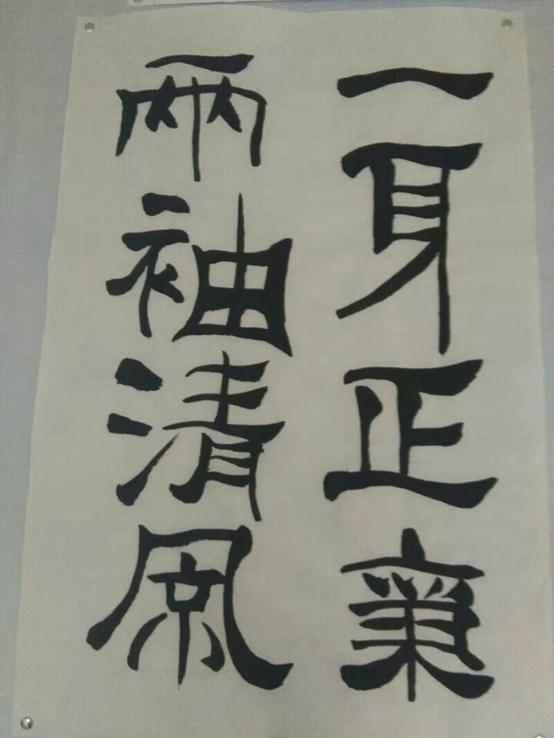 一身正
兩袖清風